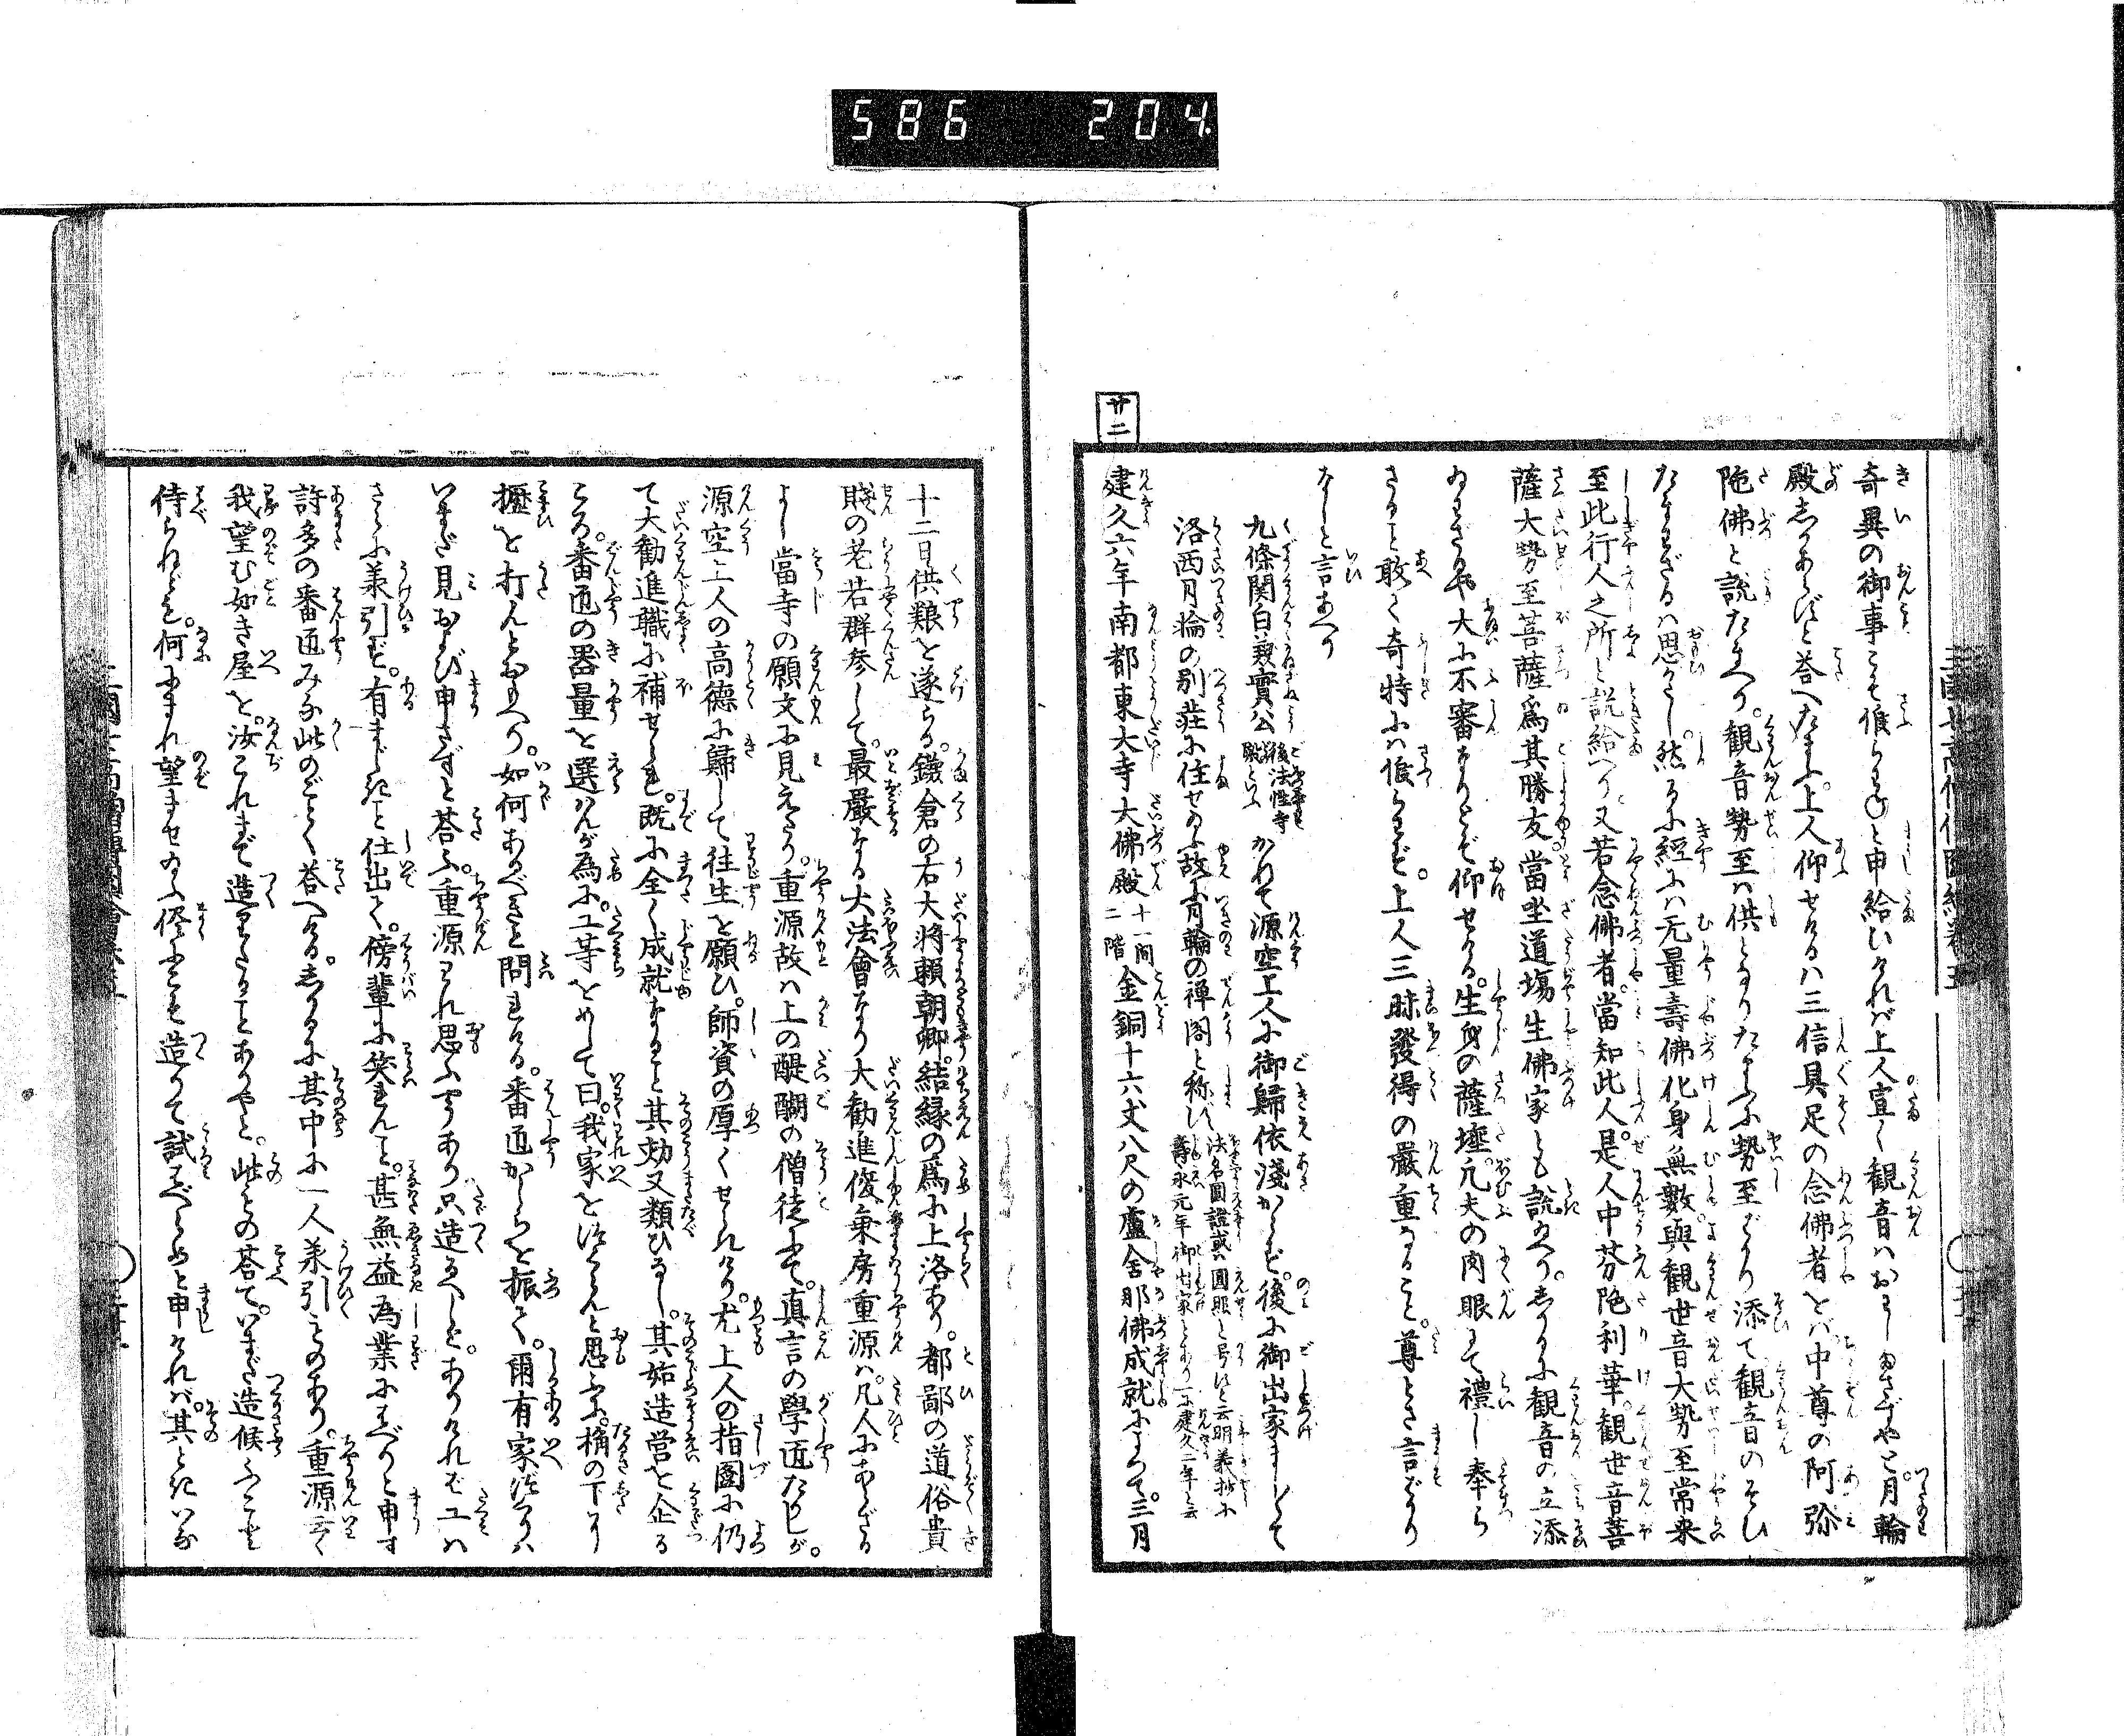 586 204
奇異の御事こそ候らむと申給ひければ上人宣く観音はおはしまさずやと。月輪
殿しからずと答へたまふ。上人仰せけるは三信具足の念佛者をば中尊の阿弥
陀佛と説たまへり。観音勢至は供となりたまふ
勢至ばかり添て観音のそひ
たまはざるは思がたし。然るに經には无量壽佛化身無數與観世音大勢至常来
至此行人之所と説給へり又若念佛者。當知此人。是人中芬陀利華。観世音菩
薩大勢至菩薩為其勝友。當坐道場生佛家とも説り。しかるに観音の立添
大に不審なりとぞ仰せける。生身の薩埵。凡夫の肉眼にて禮し奉ら
敢て奇特には候らはず。上人三昧發得の嚴重なること。尊とき言ばかり
なしと言あへり
九條関白兼實公 後法性寺殿といふ かねて源空上人に御歸依淺からず。後に御出家まし〳〵て
洛西月輪の別莊に住せ給ふ故に月輪の禅閣と称し 法名圓證或は圓照と号すと云明義抄に 壽永元年御出家とあり一に建久二年と云
廿二
建久六年南都東大寺大佛殿 十一間 二階 金銅十六丈八尺の盧舎那佛成就によつて。三月
十二日供養を遂らる。鎌倉の右大将頼朝卿。結縁の為に上洛あり。都鄙の道俗貴
賤の老若群参して。最嚴なる大法會なり大勧進俊乗房重源は。凡人にあらざる
よし當寺の願文に見えたり。重源故は上の醍醐の僧徒にて。真言の學匠たりしが。
源空上人の高德に歸して往生を願ひ。師資の厚くせられけり。尤上人の指圖に仍
て大勧進職に補せらる。既に全く成就なること其効又類ひなし。其始造営を企る
ころ。番匠の器量を選ばんが為に。工等をめして曰。我家を造らんと思ふ。桷の下より
攊を打んとおもへり。如何あるべきと問はるる。番匠かしらを振て。爾有家造りは
いまだ見および申さずと答ふ。重源われ思ふやうあり只造るべしと。ありければ工は
さらに承引ず。有まじきことを仕出て。傍輩に笑はれんこと。甚無益為業にすべりと申す
許多の番匠みな此のごとく答へける。しかるに其中に一人承引ものあり。重源云く
我望む如き屋を。汝これまで造りたることありやと。此もの答て。いまだ造候ふことも
侍らねども。何にまれ望ませ給ふ儘にこそ造りて試べらめと申ければ。其ときいな